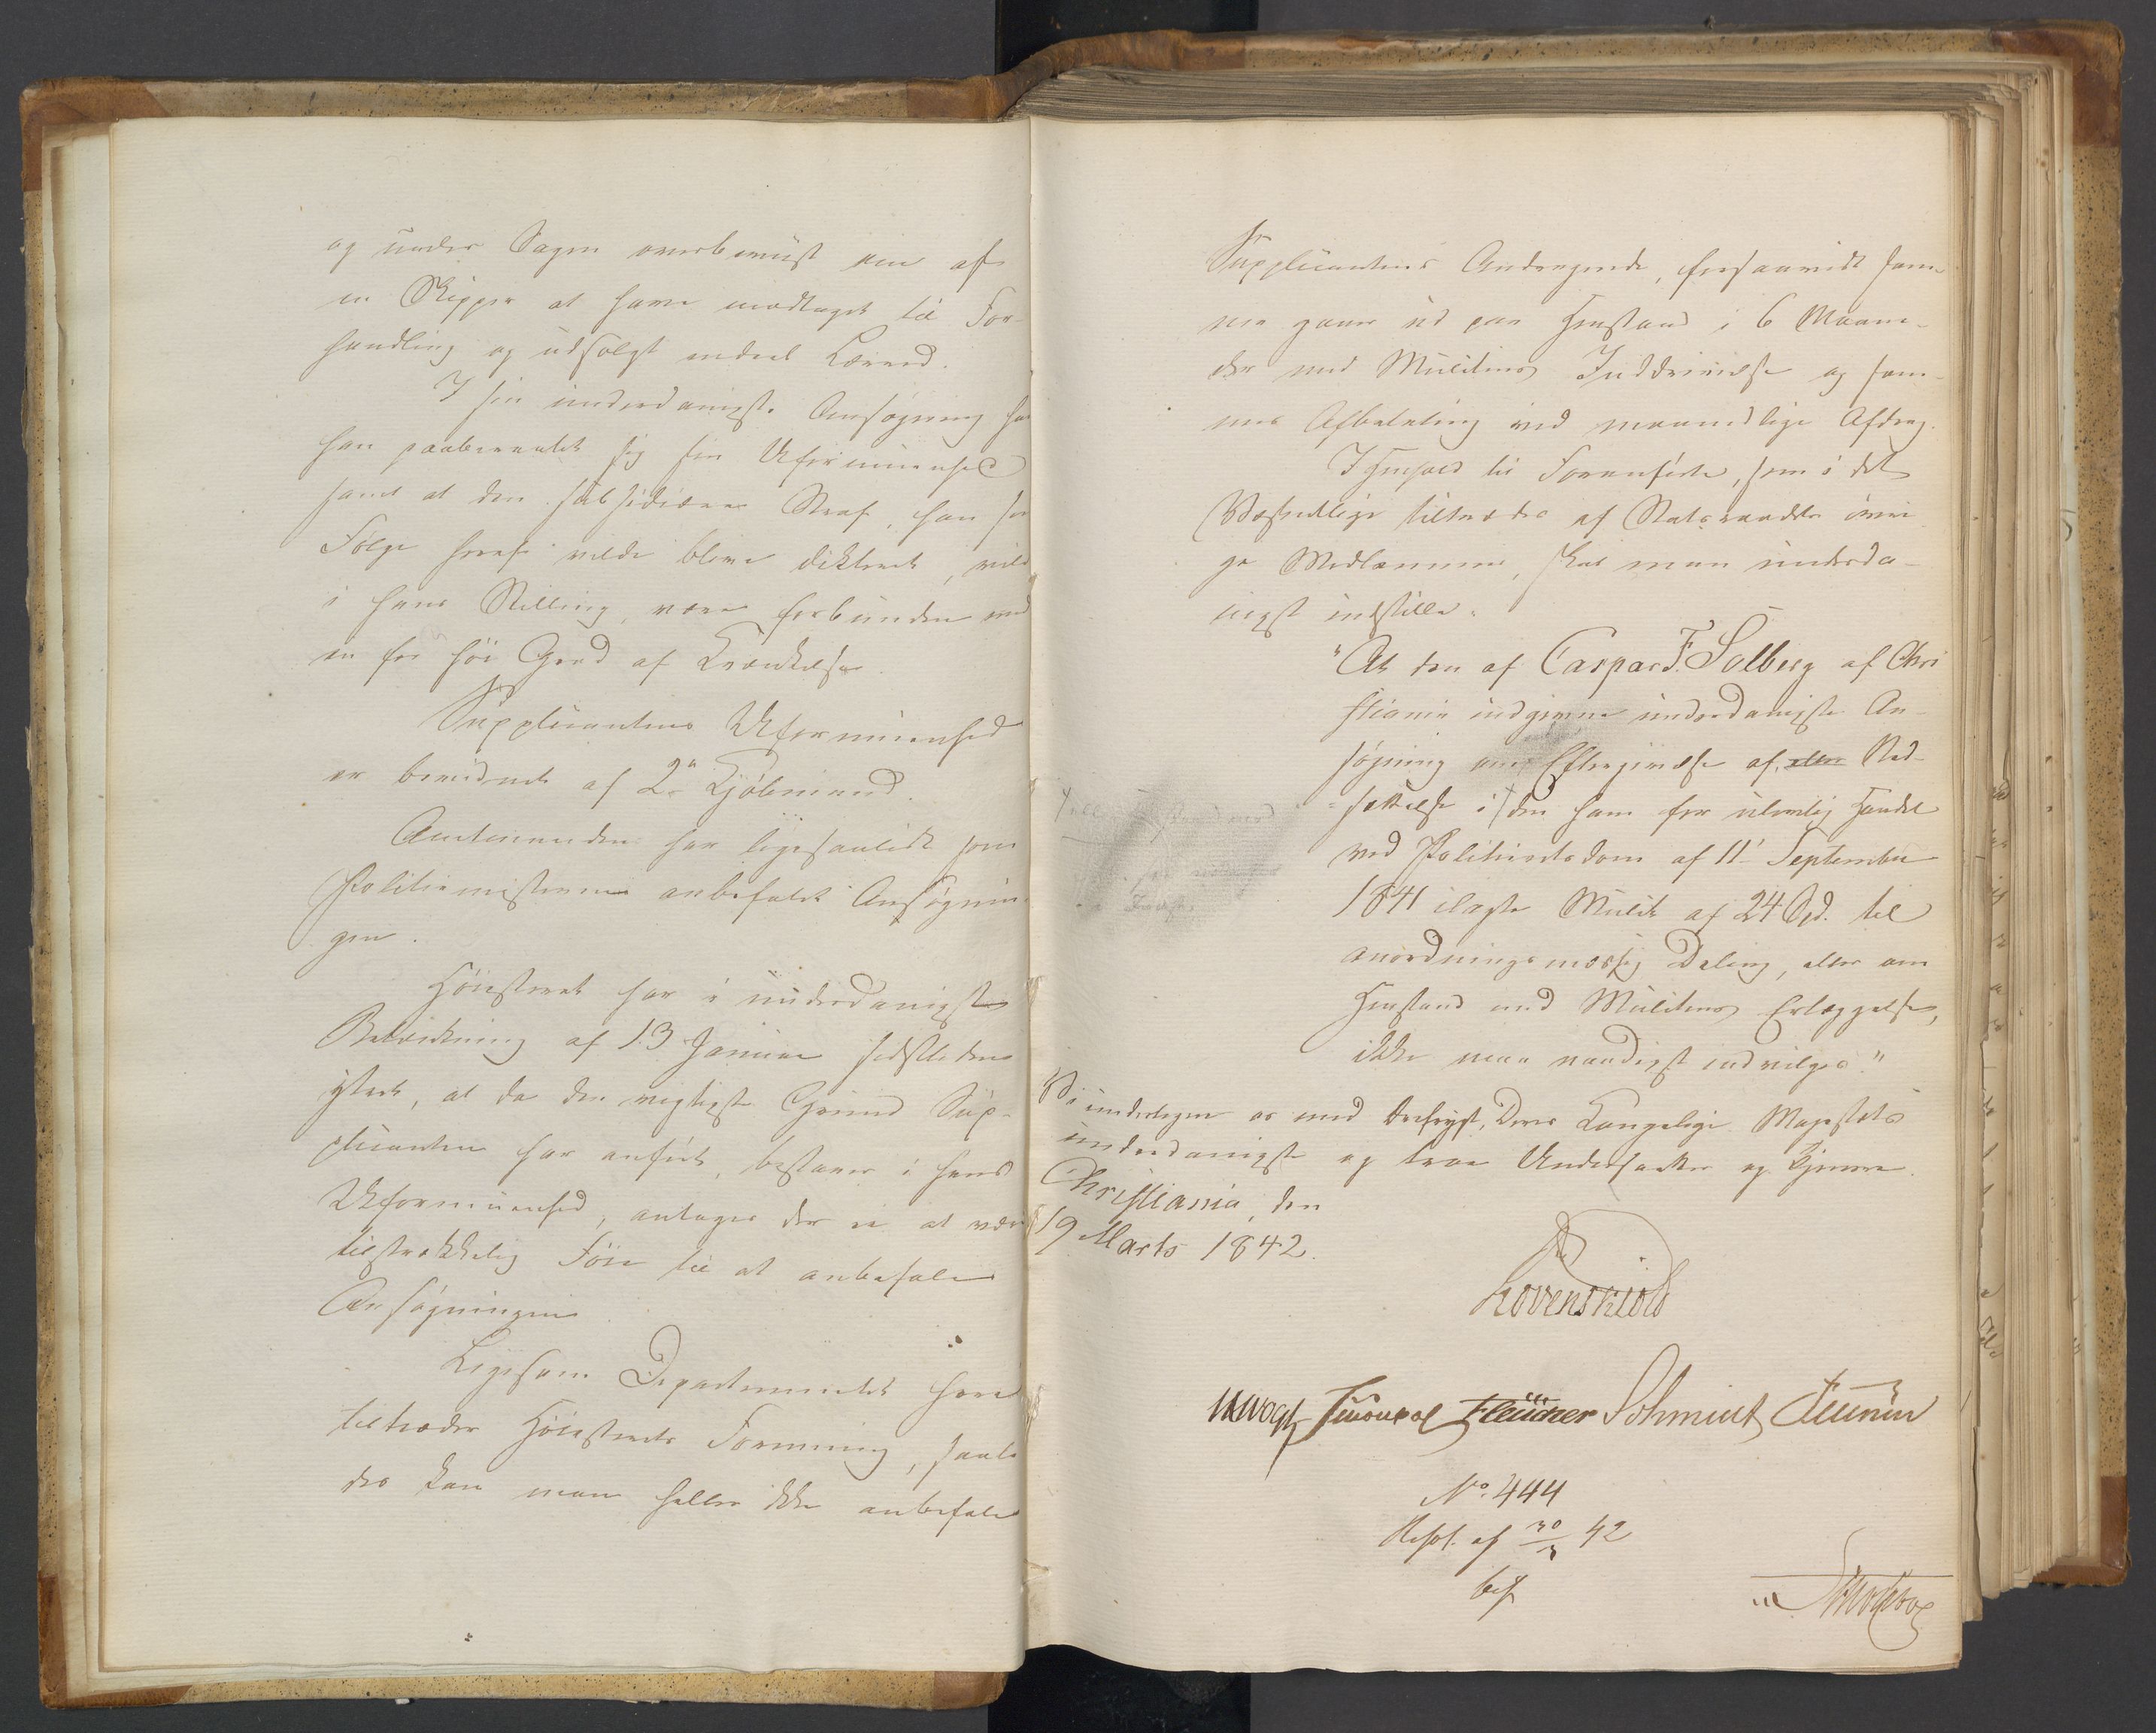 og under Sagen overbeviist om af
en Skipper at have modtaget til For-
handling og udsolgt endeel Lærred.
I sin underdanigste Ansøgning har
han paaberaabt sig sin Uformuenhed
samt at den subsidiære Straf, han som
Følge heraf vilde blive dikteret, vilde
i hans Stilling, være forbunden med
en for høi Grad af Krænkelse.
Supplicantens Uformuenhed
er bevidnet af 2de Kjøbmænd.
Amtmanden har ligesaavidt som
Politiemesteren anbefalet Ansøgnin-
gen.
Høiesteret har i underdanigst
Betænkning af 13 Januar sidstleden
yttret, at da den vigtigste Grund Sup-
plicanten har anført, bestaaer i hans
Uformuenhed, antages der ei at være
tilstrækkelig Føie til at anbefale
Ansøgningen.
Ligesom Departementet heri
tiltræder Høiesterets Formening, saale-
des kan man heller ikke anbefale
Supplicantens Andragende, forsaavidt sam-
me gaaer ud paa Henstand i 6 Maane-
der med Mulctens Inddrivelse og sam-
mes Afbetaling ved maanedlige Afdrag.
I Henhold til Foranførte, som i det
Væsentlige tiltrædes af Statsraadets øvri-
ge Medlemmer, skal man underda-
nigst indstille:
"At den af Caspar F. Solberg af Chri
stiania indgivne underdanigste An-
søgning om Eftergivelse af, eller Ned-
sættelse i den ham for ulovlig Handel
ved Politieretsdom af 11te September
1841 ilagte Mulct af 24 Spd. til
anordningsmæssig Deling, eller om
Henstand med Mulctens Erlæggelse,
ikke maa naadigst indvilges."
Vi undertegne os med dybeste Deres Kongelige Majestæts
underdanigste og troe Undersaatter og Tjenere.
Christiania, den
19 Marts 1842.
Løvenskiold
Vogt Fleischer Schmidt
No. 444
Resol. af 30/3 42
bif